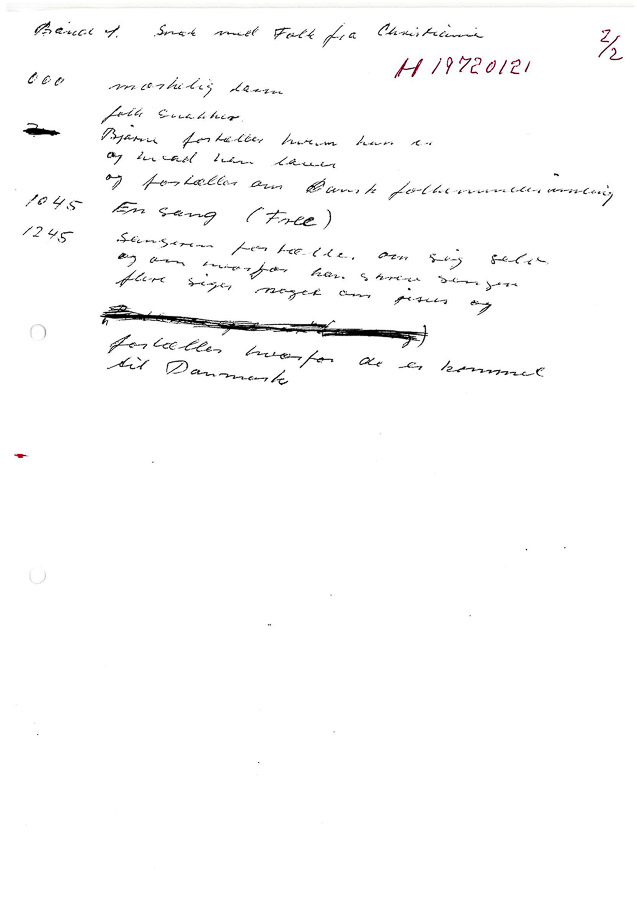 Bånd 1. Snak med Folk fra Christiania
2/2
H 19720121
000 maskelig larm
folk snakker
Bjarne fortæller hvem han er
og hvad han laver
og fortæller om Dansk folkemindesamling
1045 En sang (Free)
1245 Sangeren fortæller om sig selv
og om hvorfor han skrev sangen
flere siger noget om jesus og
fortæller hvorfor de er kommet
til Danmark